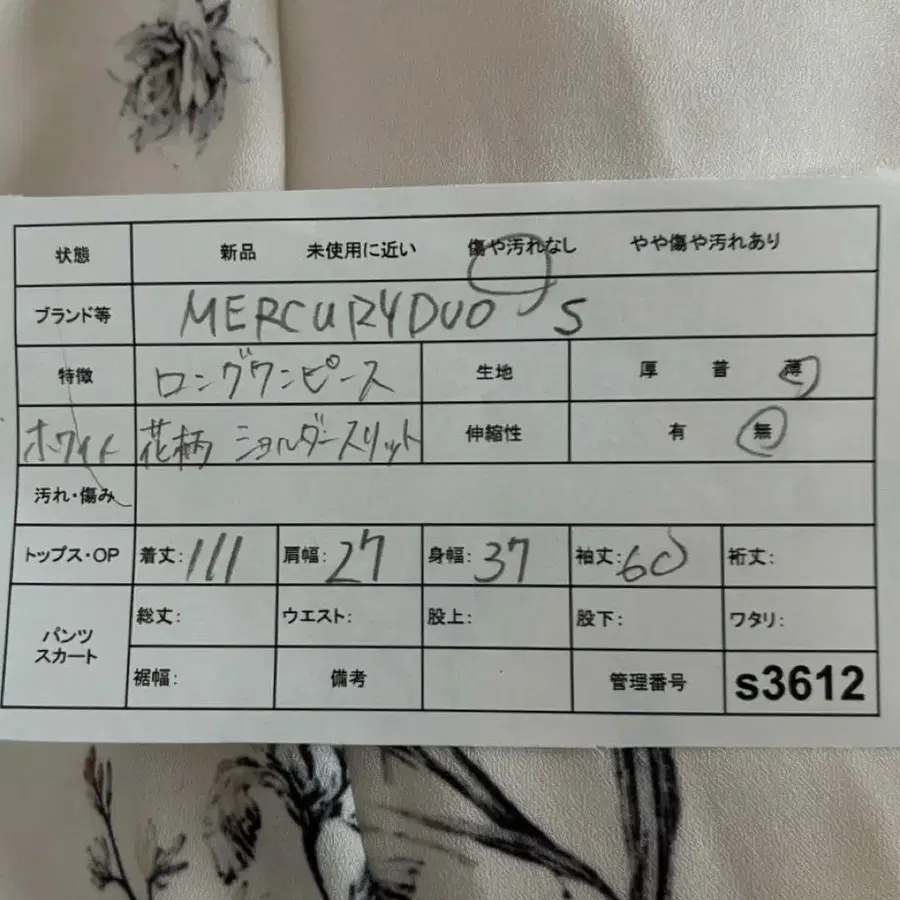 状態 新品 未使用に近い 傷や汚れなし やや傷や汚れあり
ブランド等 MERCURYDUO S
特徴 ロングワンピース 生地 厚 普 薄
ホワイト 花柄 ショルダースリット 伸縮性 有 無
汚れ・傷み
トップス・OP 着丈:111 肩幅:27 身幅:37 袖丈:60 裄丈:
パンツ スカート 総丈: ウエスト: 股上: 股下: ワタリ:
裾幅: 備考 管理番号 s3612